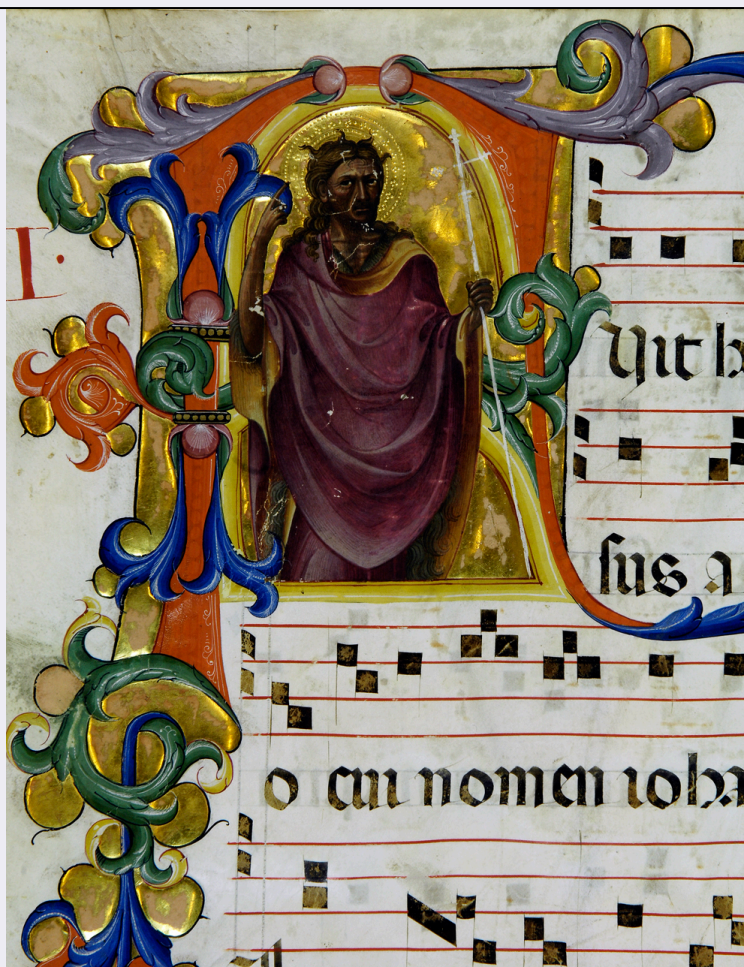 I.
FUit h
sus a
o cui nomen ioha